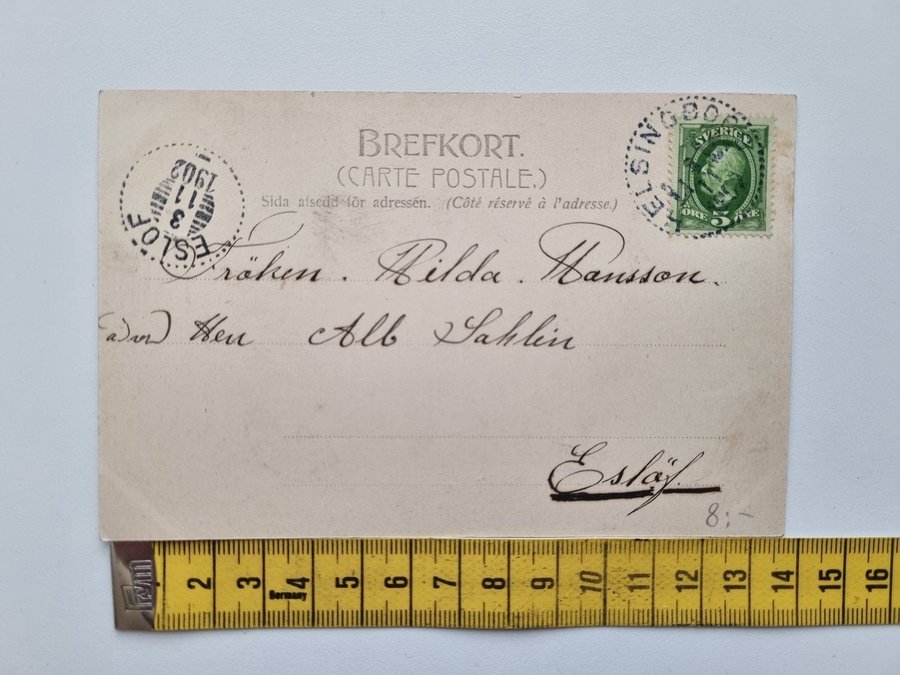 BREFKORT.
(CARTE POSTALE.)
Sida afsedd för adressen. (Côté réservé à l'adresse.)
HELSINGBORG
SVERIGE
ÖRE 5 ÖRE
ESLÖF
3
11
1902
Fröken. Hilda. Hansson.
Herr Alb Sahlin
Eslöf.
8:-
2 3 4 5 6 7 8 9 10 11 12 13 14 15 16
Germany